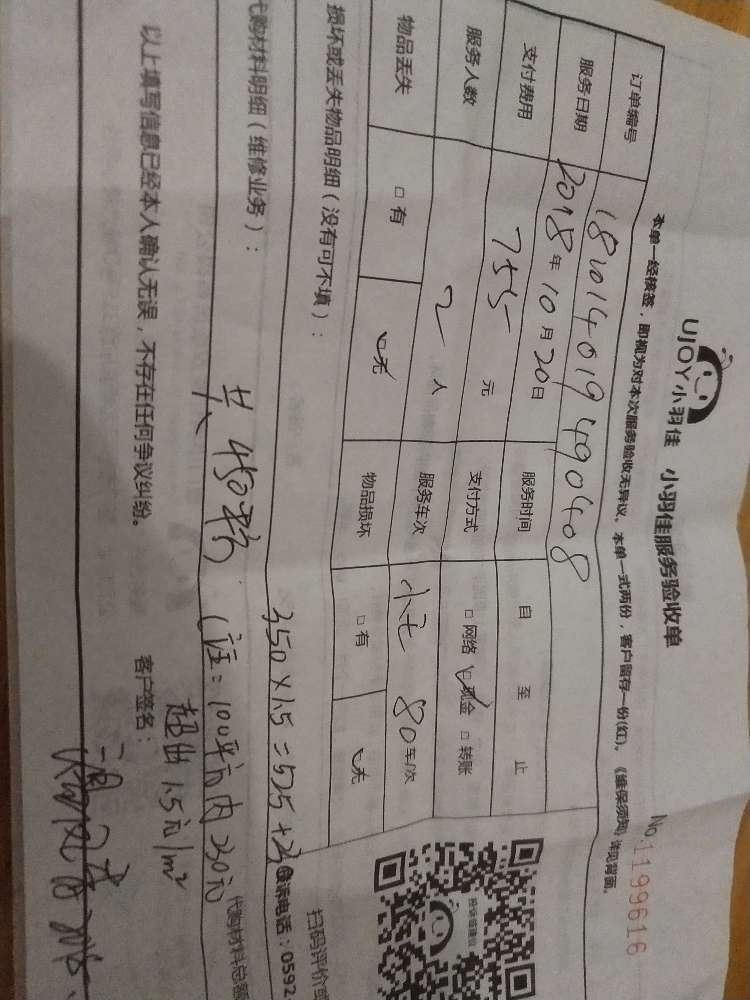 UJOY小羽佳 小羽佳服务验收单
No.1199616
本单一经核签，即视为对本次服务验收无异议。本单一式两份，客户留存一份(红)。《维保须知》详见背面。
订单编号 181014019490408
服务日期 2018年10月20日 服务时间 自 至 止
支付费用 755元 支付方式 □网络 ☑现金 □转账
服务人数 2人 服务车次 80车/次
物品丢失 □有 ☑无 物品损坏 □有 ☑无
损坏或丢失物品明细（没有可不填）：
扫码评价或
350×1.5=525+230
投诉电话：0592
代购材料明细（维修业务）：
代购材料总额
共450平方（注：100平方内230元
超出1.5元/m²
以上填写信息已经本人确认无误，不存在任何争议纠纷。 客户签名：